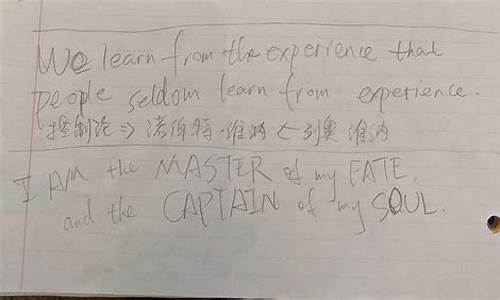 We learn from the experience that
people seldom learn from experience.
控制论 => 诺伯特·维纳
I AM the MASTER of my FATE,
and the CAPTAIN of my SOUL.